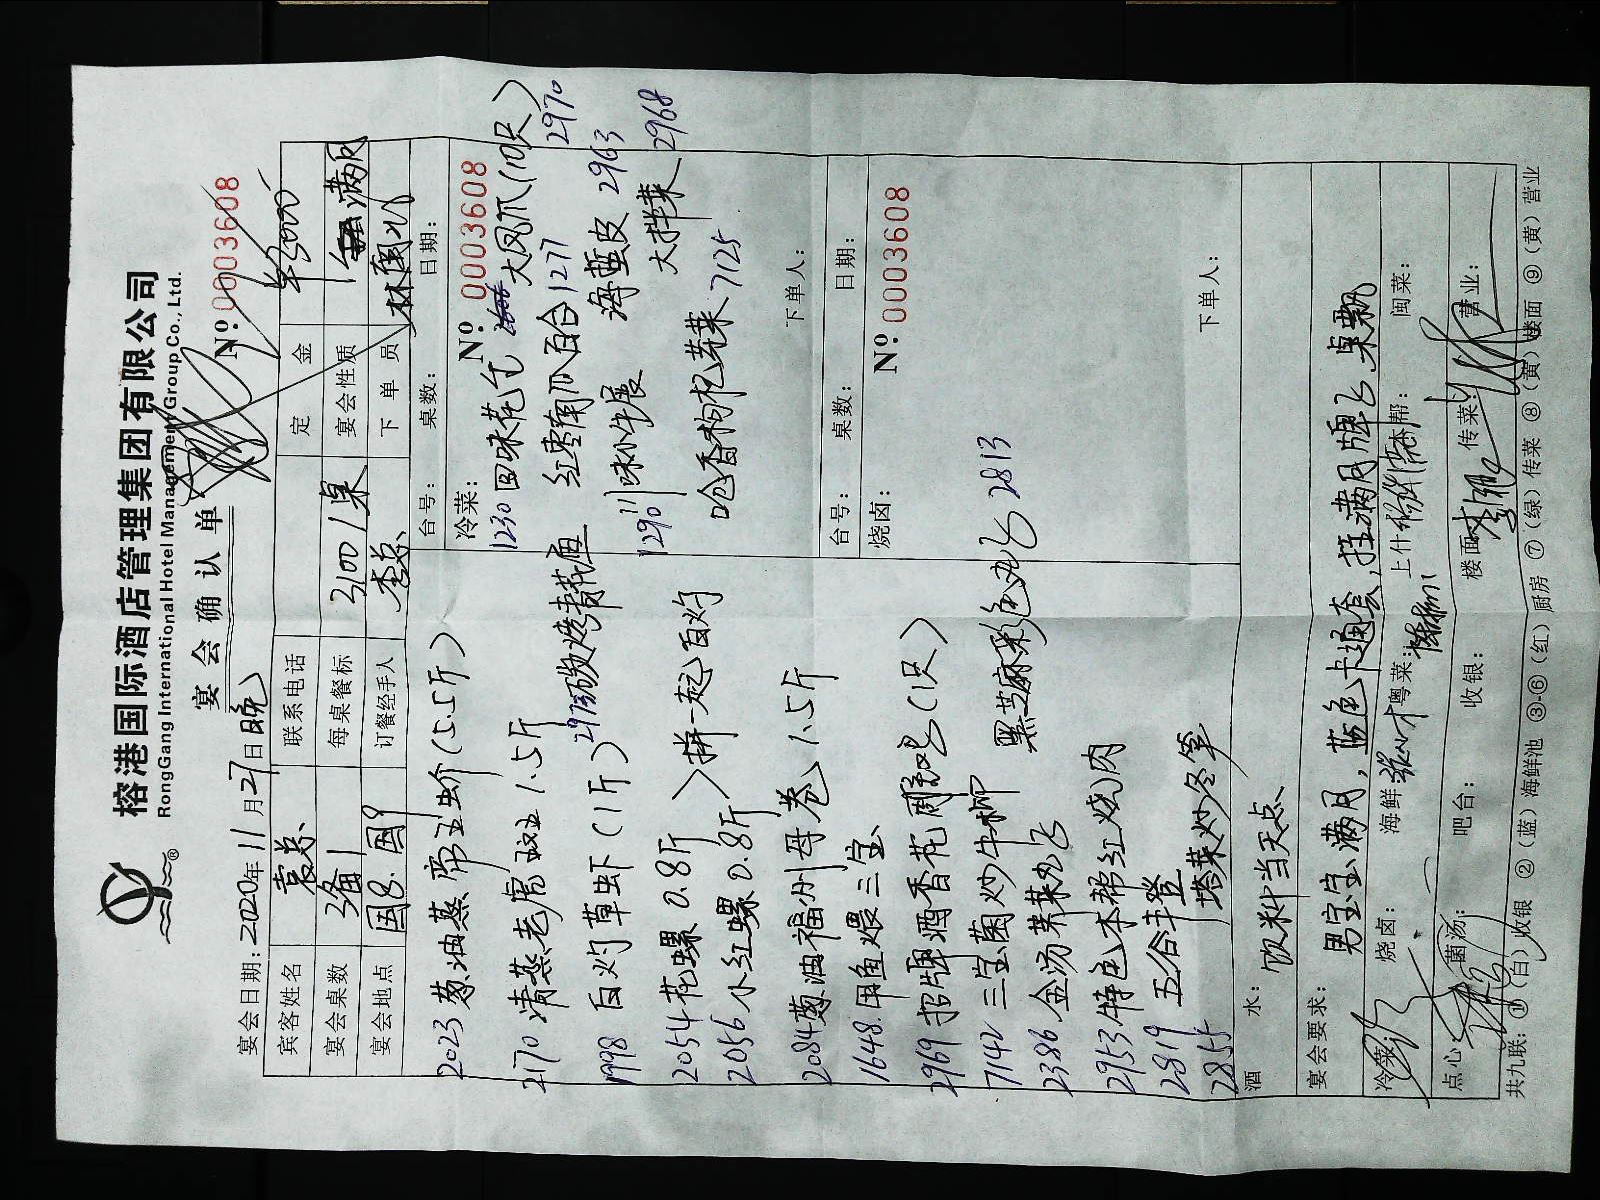 榕港国际酒店管理集团有限公司
RongGang International Hotel Management Group Co., Ltd.
宴会确认单
№ 0003608
宴会日期：2020年11月27日晚
宾客姓名 袁总 联系电话 定金
宴会桌数 3备1 每桌餐标 3100/桌 宴会性质 满月
宴会地点 国8.国9 订餐经手人 李总 下单员
2023 葱油蒸帝王蚧（5.5斤）
2170 清蒸老虎斑 1.5斤
2973
1998 百灼草虾（1斤）
2054 花螺 0.8斤
2056 小红螺 0.8斤
＞拼一起百灼
2084 葱油福州母卷 1.5斤
1648 甲鱼煨三宝
2969 招牌酒香花雕鸡（1只）
7142 三宝菌炒牛柳
2386 金汤
黑芝麻彩色 2813
2953 特色本帮红烧肉
2819 五谷丰登
2855 塔菜炒冬笋
台号： 桌数： 日期：
冷菜： № 0003608
1230 回味花生
大凤爪（10只）2970
红枣南瓜百合 1277
海蜇皮 2963
1290 川味牛展
大拌菜 2968
呛香枸杞芽菜 7125
下单人：
台号： 桌数： 日期：
烧卤： № 0003608
下单人：
酒水： 饮料当天点
宴会要求： 男宝宝满月，蓝色卡通套，挂满月牌
冷菜： 烧卤： 海鲜 粤菜： 上什 本帮： 闽菜：
点心： 菌汤： 吧台： 收银： 楼面 传菜： 营业：
共九联：①（白）收银 ②（蓝）海鲜池 ③-⑥（红）厨房 ⑦（绿）传菜 ⑧（黄）楼面 ⑨（黄）营业